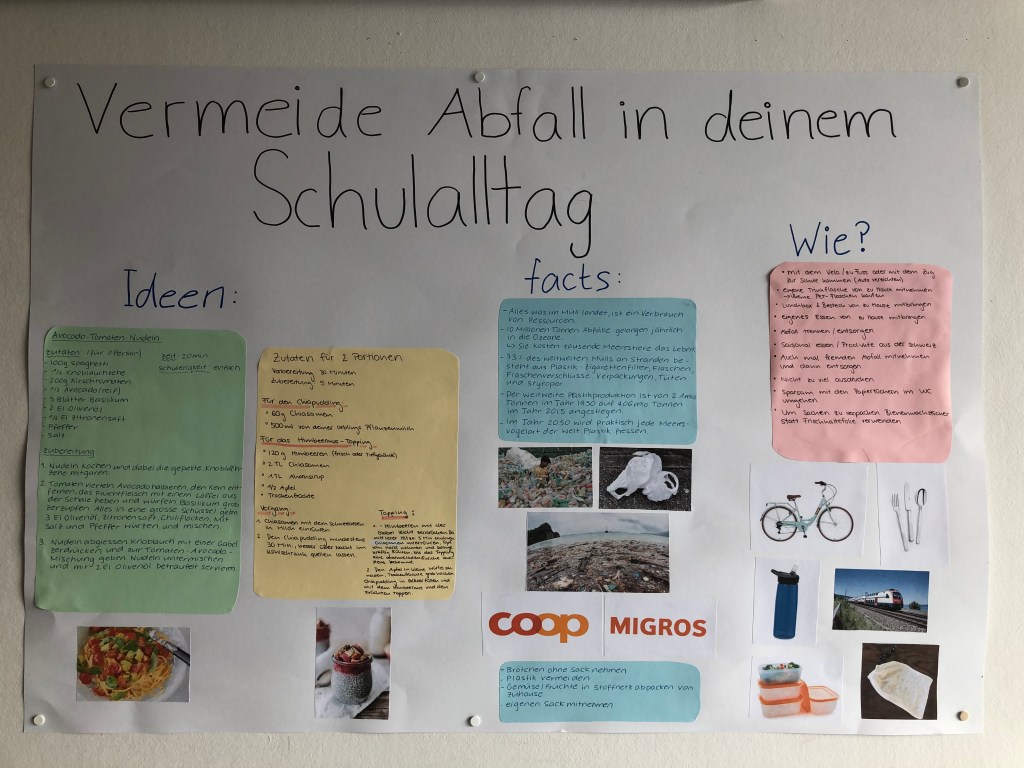 Vermeide Abfall in deinem
Schulalltag
Ideen:
Avocado-Tomaten-Nudeln:
Zutaten (für 1 Person)
Zeit 20min
Schwierigkeit einfach
- 100g Spaghetti
- 1/2 Knoblauchzehe
- 200g Kirschtomaten
- 1/2 Avocado (reif)
- 5 Blätter Basilikum
- 2 El Olivenöl
- Zitronensaft
- Pfeffer
- Salz
Zubereitung
1. Nudeln Kochen und dabei die gepellte Knoblauch-
zehe mitgaren.
2. Tomaten vierteln Avocado halbieren, den Kern ent-
fernen, das Fruchtfleisch mit einem Löffel aus
der Schale heben und würfeln Basilikum grob
zerzupfen. Alles in eine grosse Schüssel geben
3 El Olivenöl, Zitronensaft, Chiliflocken, Mit
Salz und Pfeffer würzen und mischen.
3. Nudeln abgiessen Knoblauch mit einer Gabel
zerdrücken und zur Tomaten-Avocado-
Mischung geben Nudeln untermischen
und mir 2 El Olivenöl beträufelt servieren
Zutaten für 2 Portionen
Vorbereitung 35 Minuten
Zubereitung 5 Minuten
Für den Chiapudding
• 60g Chiasamen
• 300ml von deiner Lieblings Pflanzenmilch
Für das Himbeermus-Topping
• 120g Himbeeren (frisch oder Tiefgekühlt)
• 2 TL Chiasamen
• 1TL Ahornsirup
• 1/2 Apfel
• Trockenfrüchte
Vorgang:
1. Chiasamen mit dem Schneebesen
in Milch einrühren
2. Den Chiapudding mindestens
30 Min, besser über Nacht im
Kühlschrank quellen lassen.
Topping:
1. Himbeeren mit
2. Den Apfel in kleine Würfel
Chiapudding in
mit dem Himbeermus und den
Früchten toppen.
facts:
- Alles was im Müll landet, ist ein Verbrauch
von Ressourcen.
- 10 Millionen Tonnen Abfälle gelangen jährlich
in die Ozeane.
↳ Sie kosten tausende Meerestiere das Leben
- 73% des weltweiten Mülls an Stränden be-
steht aus Plastik: Zigarettenfilter, Flaschen,
Flaschenverschlüsse, Verpackungen, Tüten
und Styropor
- Der weltweite Plastikproduktion ist von 2.1 Mio
Tonnen im Jahr 1950 auf 406 Mio Tonnen
im Jahr 2015 angestiegen.
- Im Jahr 2050 wird praktisch jede Meeres-
vogelart der Welt Plastik fressen.
coop
MIGROS
- Brötchen ohne Sack nehmen
- Plastik vermeiden
- Gemüse/Früchte in Stoffnetz abpacken von
Zuhause
- eigenen Sack mitnehmen
Wie?
• Mit dem Velo / zu Fuss oder mit dem Zug
zur Schule kommen (Auto verzichten)
• eigene Trinkflasche von zu Hause mitnehmen
→ keine Pet-Flaschen kaufen
• Lunchbox & Besteck von zu Hause mitbringen
• eigenes Essen von zu Hause mitbringen
• Abfall trennen / entsorgen
• Saisonal essen / Produkte aus der Schweiz
• Auch mal fremden Abfall mitnehmen
und dann entsorgen
• Nicht zu viel ausdrucken
• Sparsam mit den Papiertüchern im WC
umgehen
• Um Sachen zu verpacken Bienenwachstücher
statt Frischhaltefolie verwenden